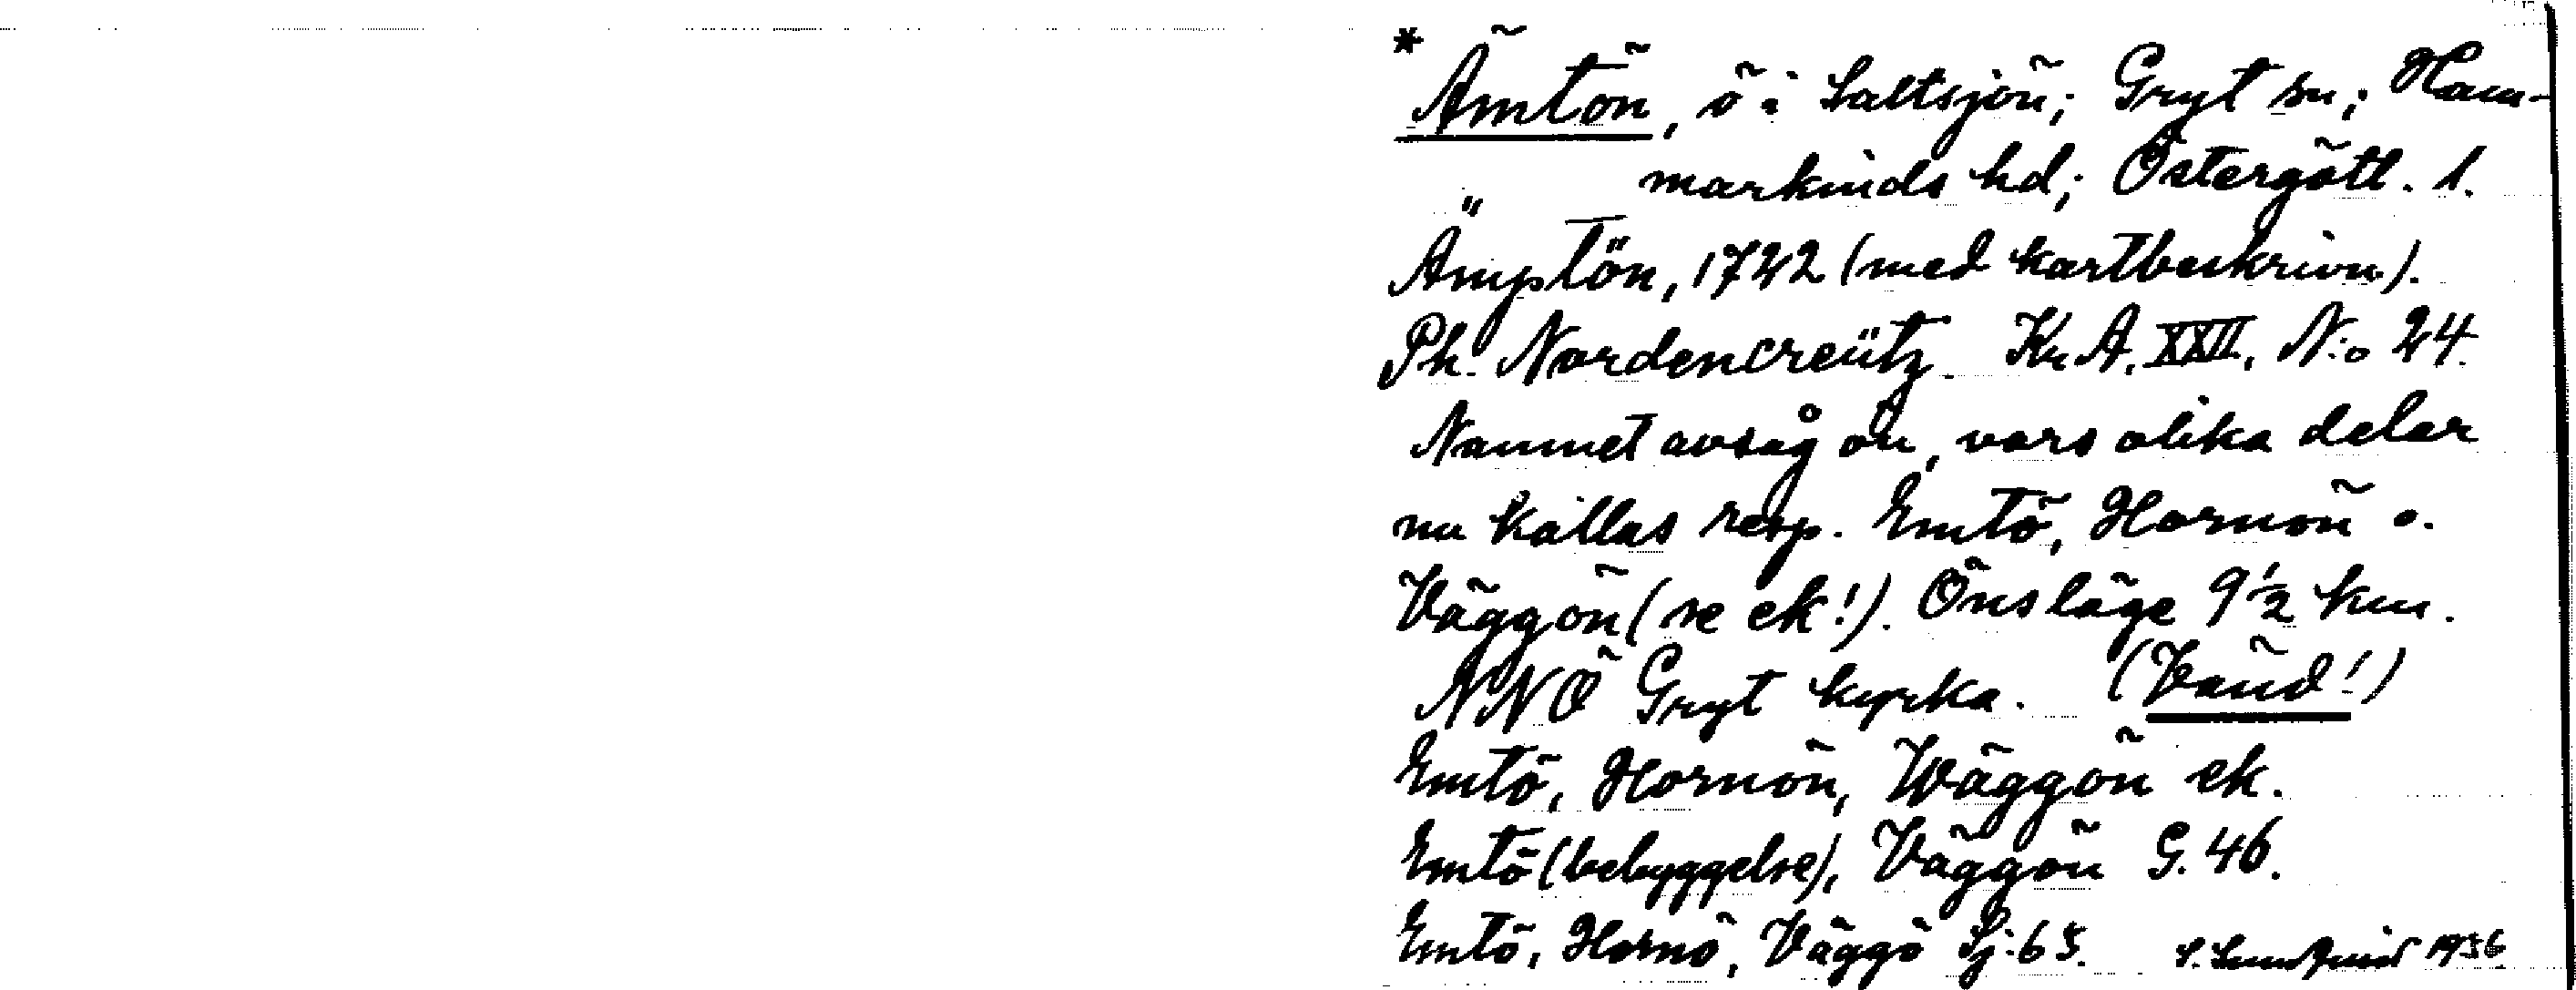 * Ämtön, ö i Saltsjön; Gryt sn; Ham-
markinds hd; Östergötl. l.
Ämptön, 1742 (med kartbeskrivn).
Ph. Nordencreütz. Kr. A. XXII, N:o 24.
Namnet avsåg ön, vars olika delar
nu kallas resp. Emtö, Hornön o.
Väggön (se ek!). Öns läge 9½ km.
NNÖ Gryt kyrka. (Vänd!)
Emtö, Hornön, Wäggön ek.
Emtö (bebyggelse), Väggön G. 46.
Emtö, Hornö, Väggö Sj: 65. 1956